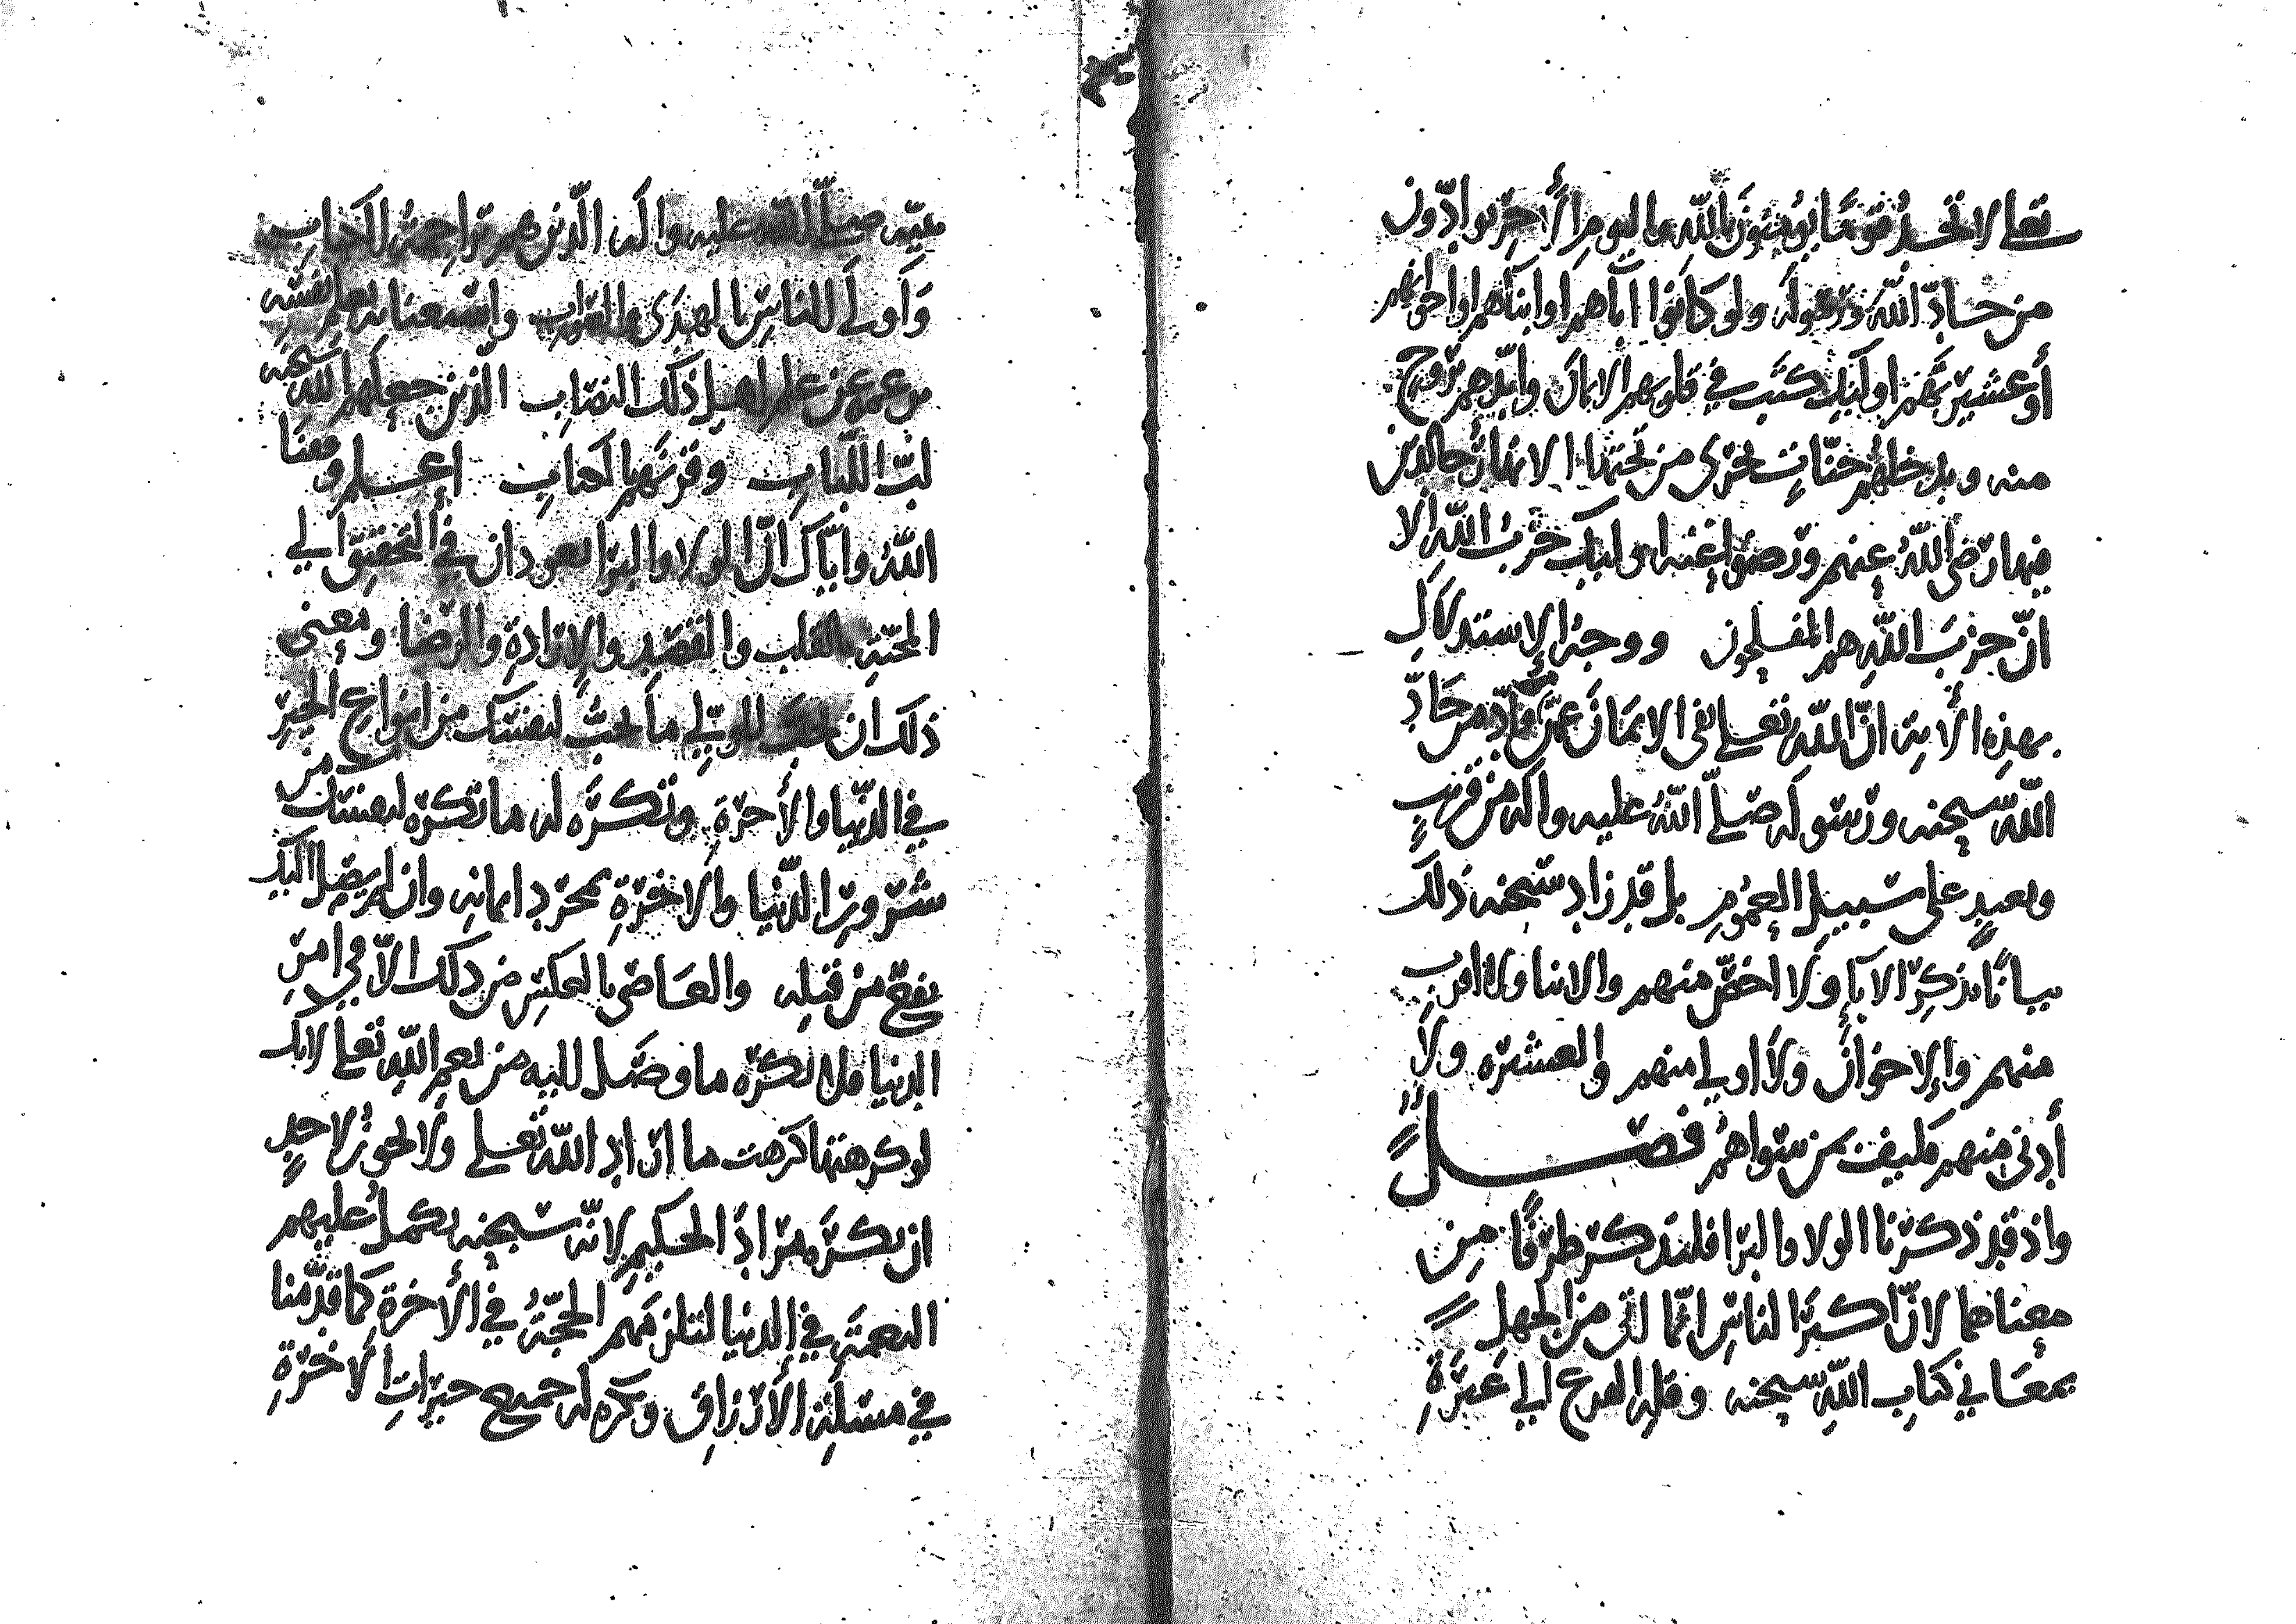 تعلى لا تجد قوما يومنون بالله واليوم الأخر يوادّون
من حادّ الله ورسوله ولو كانوا اباهم او ابناهم او اخوانهم
أو عشيرتهم اوليك كتب في قلوبهم الايمان وايّدهم بروح
منه ويدخلهم جنّات تجري من تحتها الانهار خالدين
فيها رضي الله عنهم ورضوا عنه اوليك حزب الله الا
انّ حزب الله هم المفلحون ووجه الاستدلال
بهذه الأية انّ الله تعلى نفى الايمان عمّن وادّ من حادّ
الله سبحنه ورسوله صلّى الله عليه وآله من قريب
وبعيد على سبيل العموم بل قد زاد سبحنه ذلك
بيانًا بذكر الابآ ولا اخصّ منهم والابنا ولا اقرب
منهم والاخوان ولا اولى منهم والعشيره ولا
أدنى منهم فكيف بمن سواهم فصــل
واذ قد ذكرنا الولا والبرا فلنذكر طرفًا من
معناهما لانّ اكثر الناس انّما اتي من الجهل
بمعاني كتاب الله سبحنه وقله الفرع الى عترة
نبيّه صلّى الله عليه وآله الّذين هم تراجمة الكتاب
وأولى للناس بالهدى والصواب واستغنا بعلم نفسه
من عمي عن علم اهل ذلك النصاب الذين جعلهم الله سبحنه
لبّ اللّباب وقرنهم بالكتاب اعلم وفقنا
الله وايّاك انّ الولا والبرا يعودان في التحقيق الى
المحبّة بالقلب والقصد والإرادة والرضا ومعنى
ذلك ان تحبّ للوليّ ما تحبّ لنفسك من انواع الخير
في الدّنيا والأخرة وتكره له ما تكره لنفسك من
شرور الدّنيا والاخرة بمجرد ايمانه وان لم يصل اليك
نفع من قبله والعاصي بالعكس من ذلك الاّ في امر
الدنيا فلا تكره ما وصل اليه من نعم الله تعلى لانك
لو كرهتها كرهت ما اراد الله تعلى ولا يجوز لاحد
ان يكره مراد الحكيم لانّه سبحنه يكمل عليهم
النعمة في الدنيا لتلزمهم الحجّة في الأخرة كما قدّمنا
في مسلة الأرزاق وتكره له جميع خيرات الاخرة